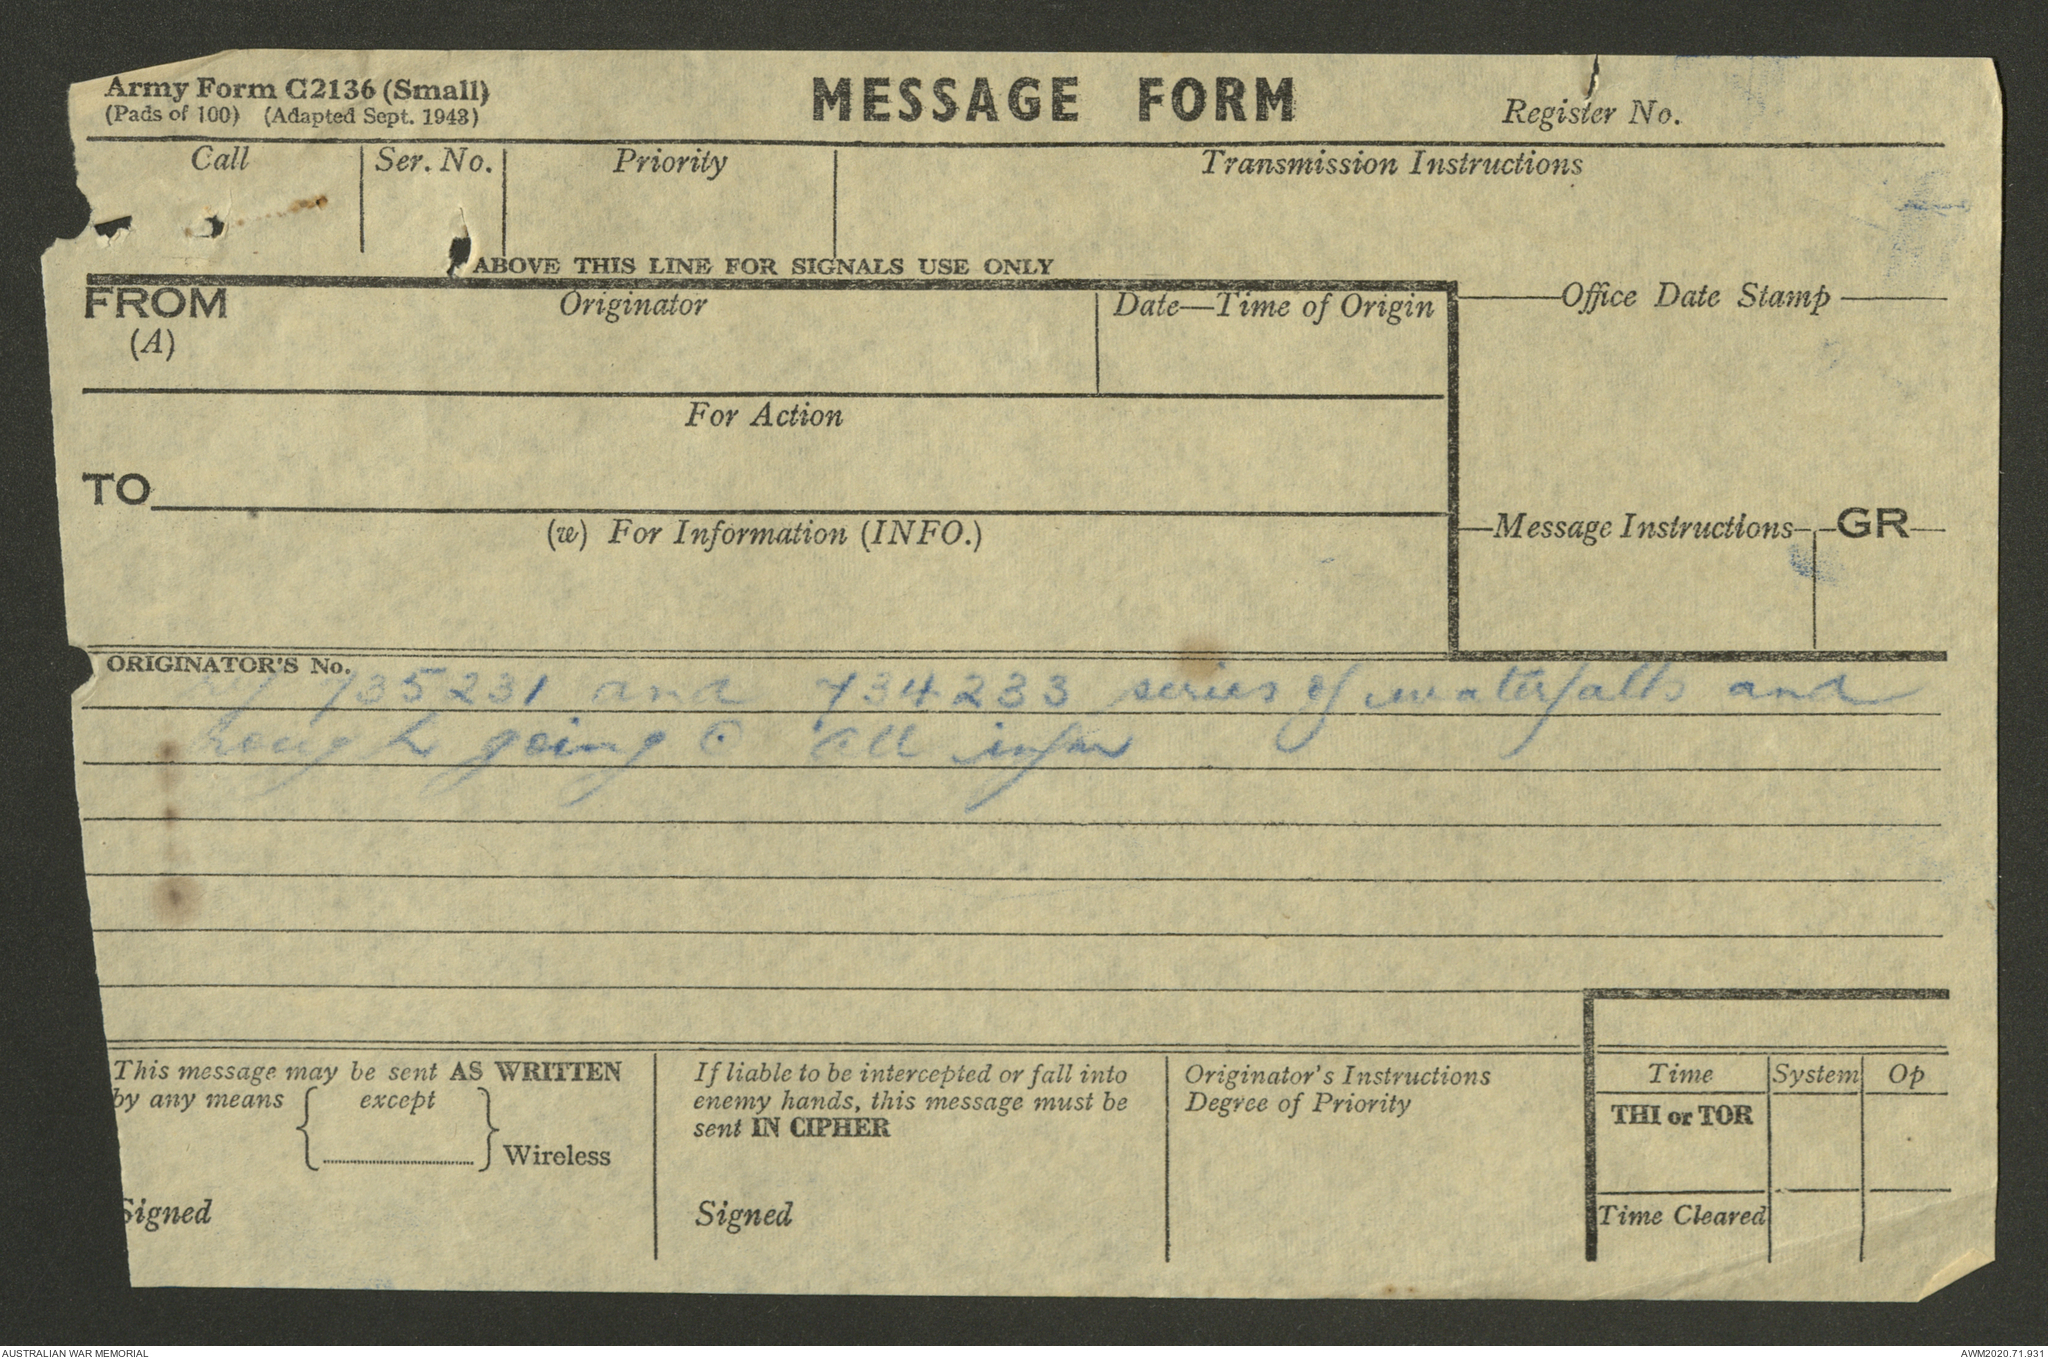 Army Form C2136 (Small)
(Pads of 100) (Adapted Sept. 1943)
MESSAGE FORM
Register No.
Call
Ser. No.
Priority
Transmission Instructions
ABOVE THIS LINE FOR SIGNALS USE ONLY
FROM
(A)
Originator
Date—Time of Origin
Office Date Stamp
For Action
TO
(w) For Information (INFO.)
Message Instructions
GR
ORIGINATOR'S No.
735231 and 734233 series of waterfalls and
rough going all infm
This message may be sent AS WRITTEN
by any means except
Wireless
Signed
If liable to be intercepted or fall into
enemy hands, this message must be
sent IN CIPHER
Signed
Originator's Instructions
Degree of Priority
Time
System
Op
THI or TOR
Time Cleared
AUSTRALIAN WAR MEMORIAL
AWM2020.71.931